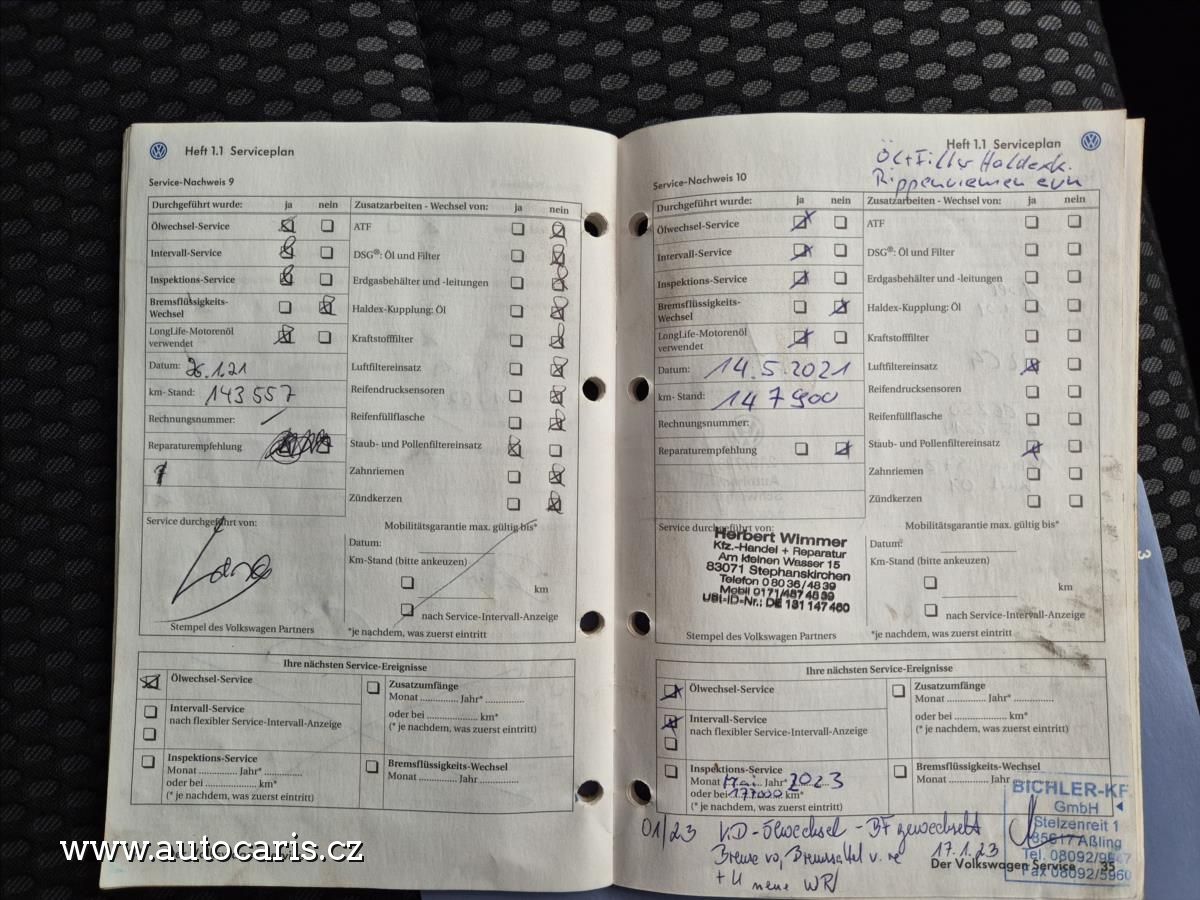 Heft 1.1 Serviceplan
Service-Nachweis 9
Durchgeführt wurde: ja nein Zusatzarbeiten - Wechsel von: ja nein
Ölwechsel-Service ATF
Intervall-Service DSG®: Öl und Filter
Inspektions-Service Erdgasbehälter und -leitungen
Bremsflüssigkeits-
Wechsel Haldex-Kupplung: Öl
LongLife-Motorenöl
verwendet Kraftstofffilter
Datum: 26.1.21 Luftfiltereinsatz
km- Stand: 143 557 Reifendrucksensoren
Rechnungsnummer: Reifenfüllflasche
Reparaturempfehlung Staub- und Pollenfiltereinsatz
Zahnriemen
Zündkerzen
Service durchgeführt von: Mobilitätsgarantie max. gültig bis*
Datum:
Km-Stand (bitte ankeuzen)
km
nach Service-Intervall-Anzeige
Stempel des Volkswagen Partners *je nachdem, was zuerst eintritt
Ihre nächsten Service-Ereignisse
Ölwechsel-Service Zusatzumfänge
Monat ............. Jahr* ..............
Intervall-Service
nach flexibler Service-Intervall-Anzeige oder bei .................. km*
(* je nachdem, was zuerst eintritt)
Inspektions-Service Bremsflüssigkeits-Wechsel
Monat ............. Jahr* ............. Monat ............. Jahr ..............
oder bei .................. km*
(* je nachdem, was zuerst eintritt)
www.autocaris.cz
Heft 1.1 Serviceplan
Öl+Filter Haldexk.
Rippenriemen ern
Service-Nachweis 10
Durchgeführt wurde: ja nein Zusatzarbeiten - Wechsel von: ja nein
Ölwechsel-Service ATF
Intervall-Service DSG®: Öl und Filter
Inspektions-Service Erdgasbehälter und -leitungen
Bremsflüssigkeits-
Wechsel Haldex-Kupplung: Öl
LongLife-Motorenöl
verwendet Kraftstofffilter
Datum: 14.5.2021 Luftfiltereinsatz
km- Stand: 147 900 Reifendrucksensoren
Rechnungsnummer: Reifenfüllflasche
Reparaturempfehlung Staub- und Pollenfiltereinsatz
Zahnriemen
Zündkerzen
Service durchgeführt von: Mobilitätsgarantie max. gültig bis*
Herbert Wimmer
Kfz.-Handel + Reparatur
Am kleinen Wasser 15
83071 Stephanskirchen
Telefon 0 80 36/48 39
Mobil 0171/487 48 39
USt-ID-Nr.: DE 131 147 460
Datum:
Km-Stand (bitte ankeuzen)
km
nach Service-Intervall-Anzeige
Stempel des Volkswagen Partners *je nachdem, was zuerst eintritt
Ihre nächsten Service-Ereignisse
Ölwechsel-Service Zusatzumfänge
Monat ............. Jahr* ..............
Intervall-Service
nach flexibler Service-Intervall-Anzeige oder bei .................. km*
(* je nachdem, was zuerst eintritt)
Inspektions-Service Bremsflüssigkeits-Wechsel
Monat Mai Jahr* 2023 Monat ............. Jahr
oder bei 177000 km*
(* je nachdem, was zuerst eintritt)
BICHLER-KF
GmbH
Stelzenreit 1
85617 Aßling
Tel. 08092/9
Fax 08092/5960
01/23 V.D-Ölwechsel - BF gewechselt
Bremse vo, Bremssattel v. re 17.1.23
+ neue WR
Der Volkswagen Service 35
3